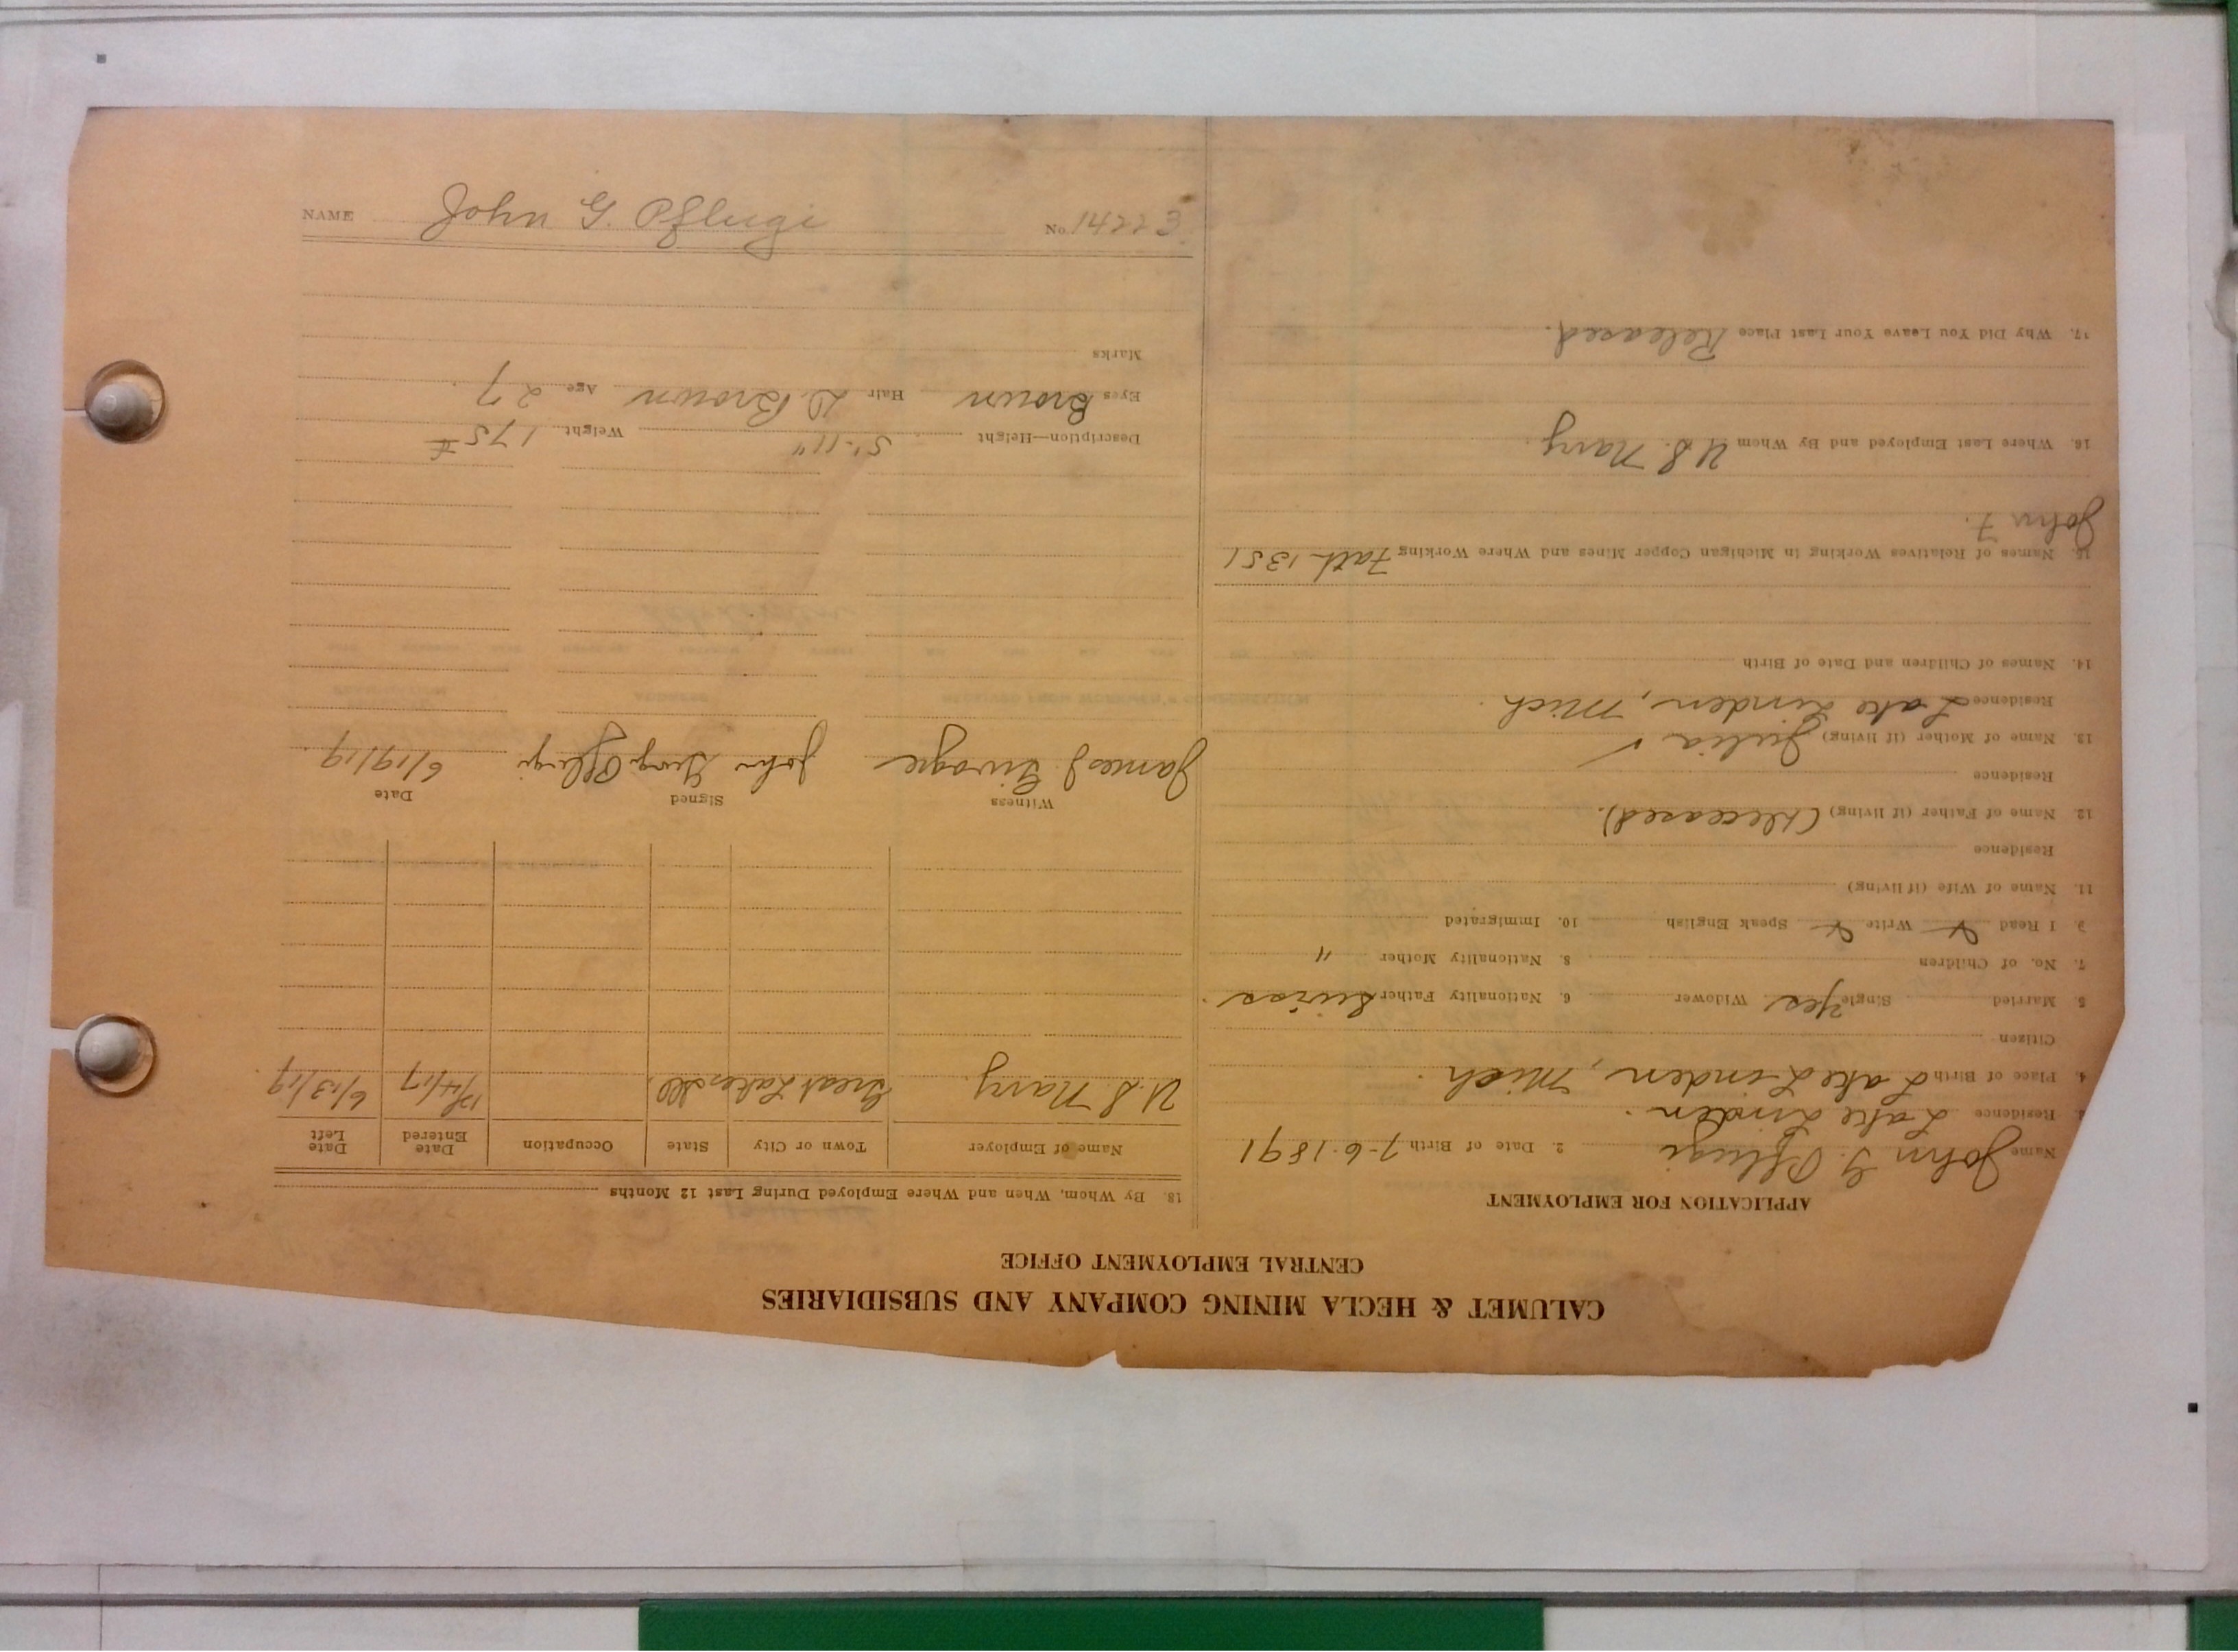 CALUMET & HECLA MINING COMPANY AND SUBSIDIARIES
CENTRAL EMPLOYMENT OFFICE
APPLICATION FOR EMPLOYMENT
Name John G. Pflugi 2. Date of Birth 7-6-1891
Residence Lake Linden.
4. Place of Birth Lake Linden, Mich.
Citizen
5. Married Single Yes. Widower 6. Nationality Father Swiss.
7. No. of Children 8. Nationality Mother "
9. I Read Write Speak English 10. Immigrated
11. Name of Wife (if living)
Residence
12. Name of Father (if living) (Deceased).
Residence
13. Name of Mother (if living) Julia ✓
Residence Lake Linden, Mich.
14. Names of Children and Date of Birth
15. Names of Relatives Working in Michigan Copper Mines and Where Working Fath 1351
John F.
16. Where Last Employed and By Whom U.S. Navy.
17. Why Did You Leave Your Last Place Released.
18. By Whom, When and Where Employed During Last 12 Months
Name of Employer Town or City State Occupation Date Entered Date Left
U.S. Navy. Great Lakes Ill. 12/4/17 6/13/19
Witness Signed Date
James J. John Pflugi 6/19/19.
Description—Height 5'-11" Weight 175 #
Eyes Brown Hair D. Brown Age 27.
Marks
NAME John G. Pflugi No. 14223